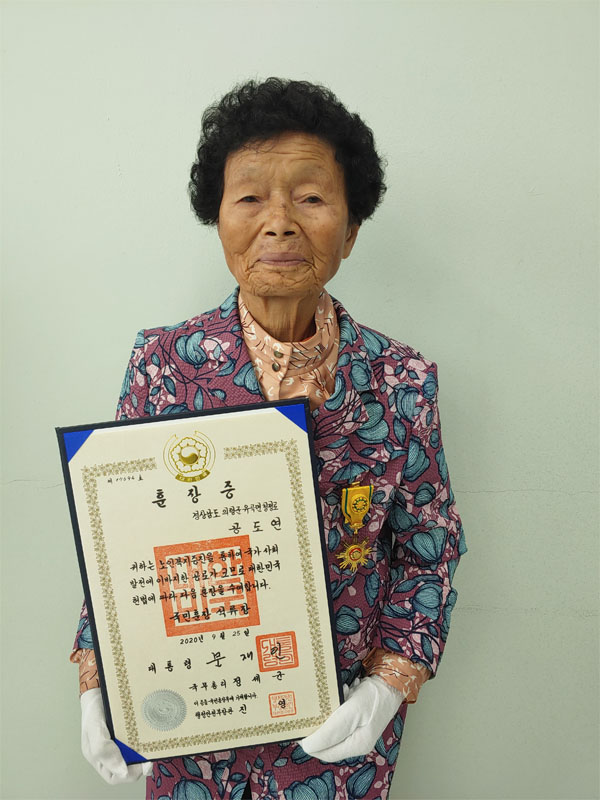 훈장증
경상남도 의령군 유곡면 칠곡로
공도연
귀하는 노인복지증진을 통하여 국가 사회
발전에 이바지한 공로가 크므로 대한민국
헌법에 따라 다음 훈장을 수여합니다.
국민훈장 석류장
2020년 9월 25일
대통령 문재인
국무총리 정세균
행정안전부장관 진 영